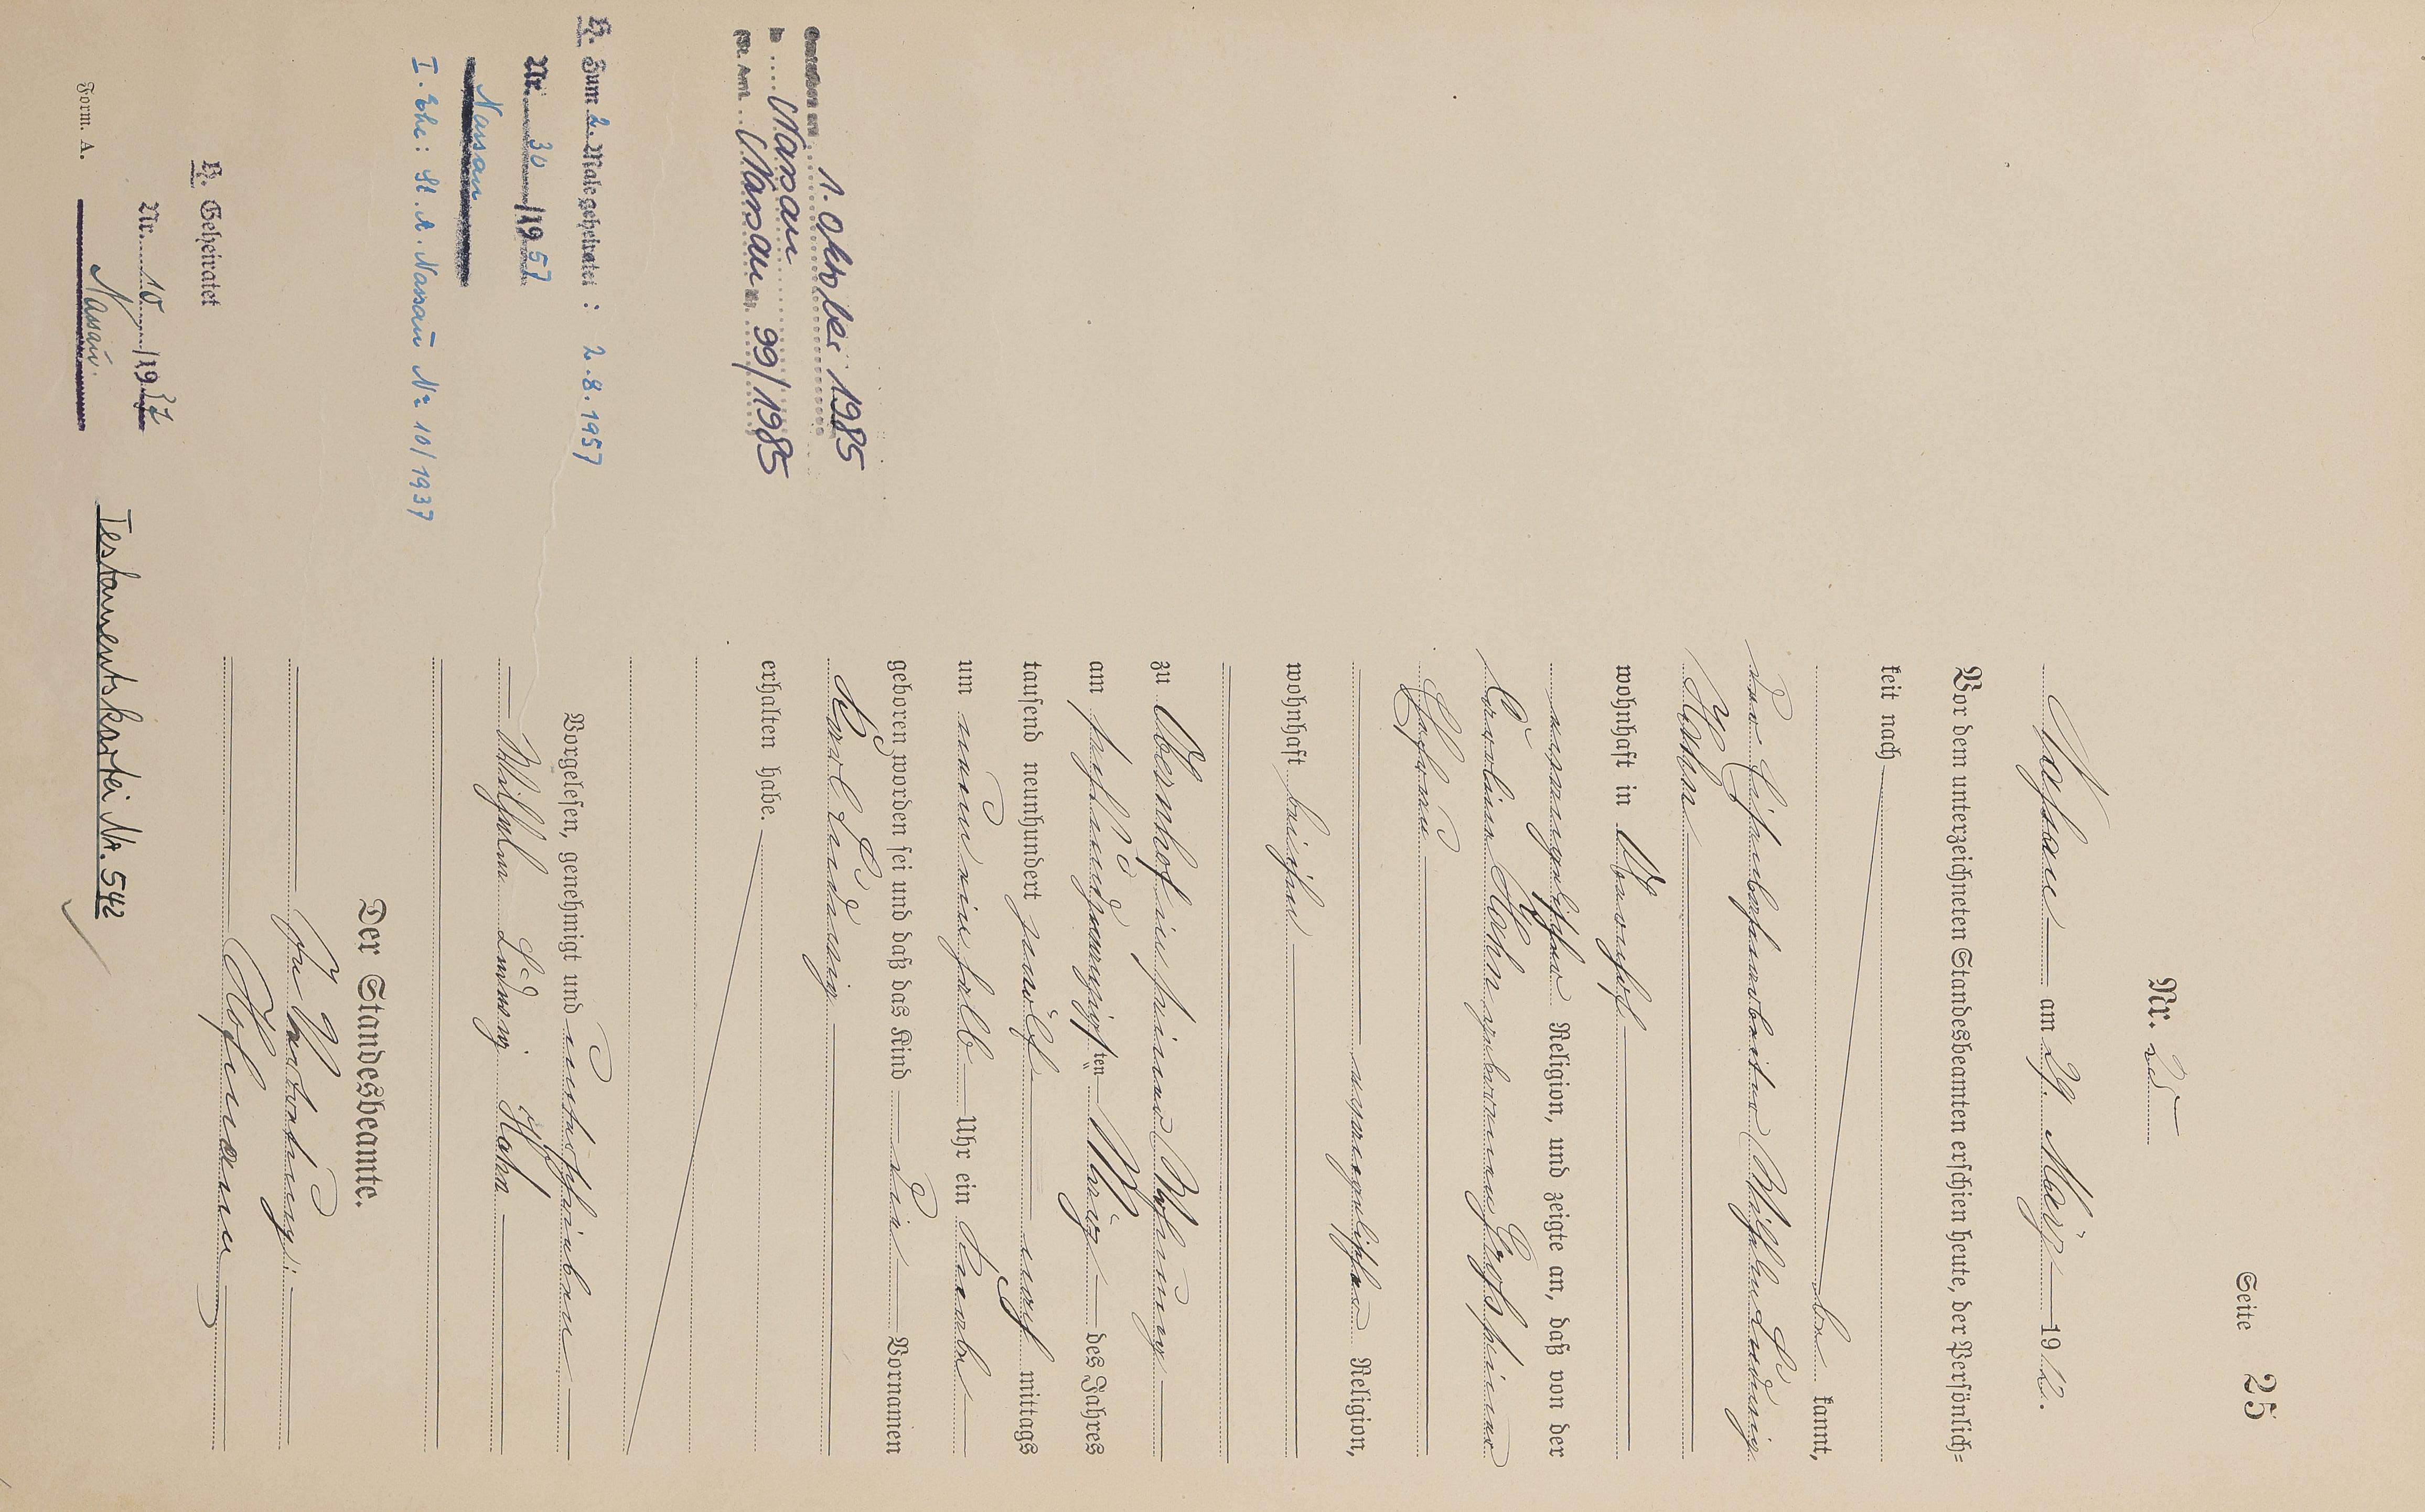 Seite 25
Nr. 25
Nassau am 29. März 1912.
Vor dem unterzeichneten Standesbeamten erschien heute, der Persönlich=
keit nach
bekannt,
der Eisenbahnarbeiter Wilhelm Ludwig
Hahn
wohnhaft in Obernhof
evangelischer Religion, und zeigte an, daß von der
Karoline Hahn geborenen Groß seiner
Ehefrau
evangelischer Religion,
wohnhaft bei ihm
zu Obernhof in seiner Wohnung
am sechsundzwanzigsten März des Jahres
tausend neunhundert zwölf nachmittags
um neun ein halb Uhr ein Knabe
geboren worden sei und daß das Kind die Vornamen
Karl Ludwig
erhalten habe.
Vorgelesen, genehmigt und unterschrieben
Wilhelm Ludwig Hahn
Der Standesbeamte.
In Vertretung:
Hofmann
Gestorben am 1. Oktober 1985
in Nassau
(St. Amt. Nassau Nr. 99/1985
H. Zum 2. Male geheiratet: 2.8.1957
Nr. 30/1957
Nassau
I. Ehe: St. A. Nassau Nr 10/1937
H. Geheiratet
Nr. 10/1937
Nassau.
Form. A.
Testamentskartei Nr. 542